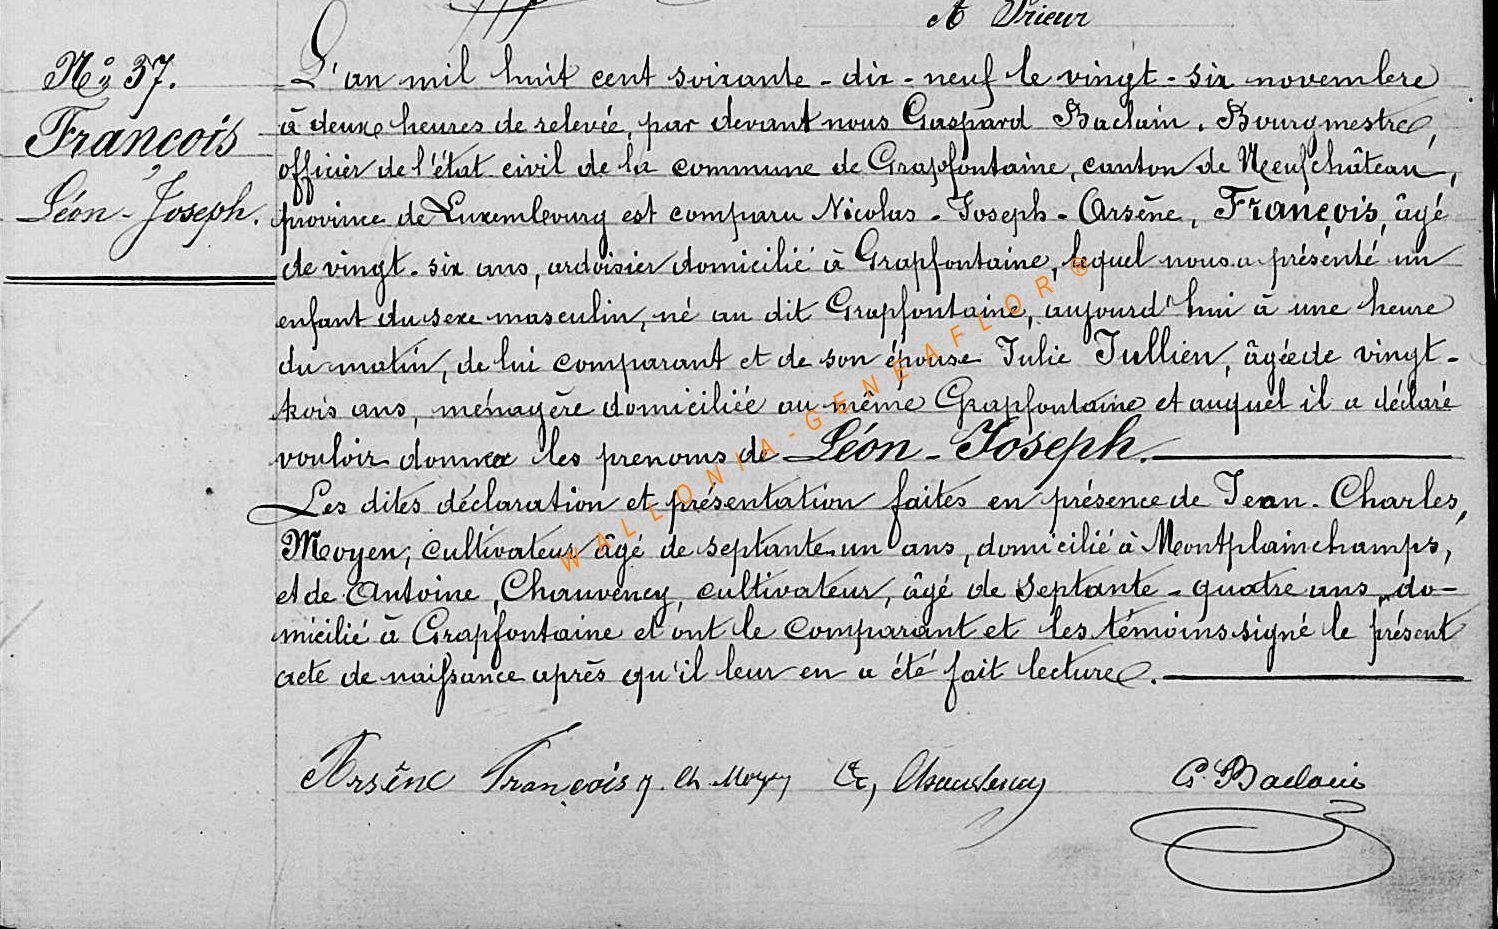 A Prieur
Nº 37.
François
Léon-Joseph.
L'an mil huit cent soixante-dix-neuf le vingt-six novembre
à deux heures de relevée, par devant nous Gaspard Baclain, Bourgmestre,
officier de l'état civil de la commune de Grapfontaine, canton de Neufchâteau,
province de Luxembourg est comparu Nicolas-Joseph-Arsène, François, âgé
de vingt-six ans, ardoisier domicilié à Grapfontaine, lequel nous a présenté un
enfant du sexe masculin, né au dit Grapfontaine, aujourd'hui à une heure
du matin, de lui comparant et de son épouse Julie Jullien, âgée de vingt-
trois ans, ménagère domiciliée au même Grapfontaine et auquel il a déclaré
vouloir donner les prenoms de Léon-Joseph.
Les dites déclaration et présentation faites en présence de Jean-Charles,
Moyen, cultivateur âgé de septante-un ans, domicilié à Montplainchamps,
et de Antoine, Chauvency, cultivateur, âgé de septante-quatre ans, do-
micilié à Grapfontaine et ont le comparant et les témoins signé le présent
acte de naissance après qu'il leur en a été fait lecture.
Arsène François J. Ch Moyen Chauvency G. Baclain
WALLONIA-GENEAFLOR®